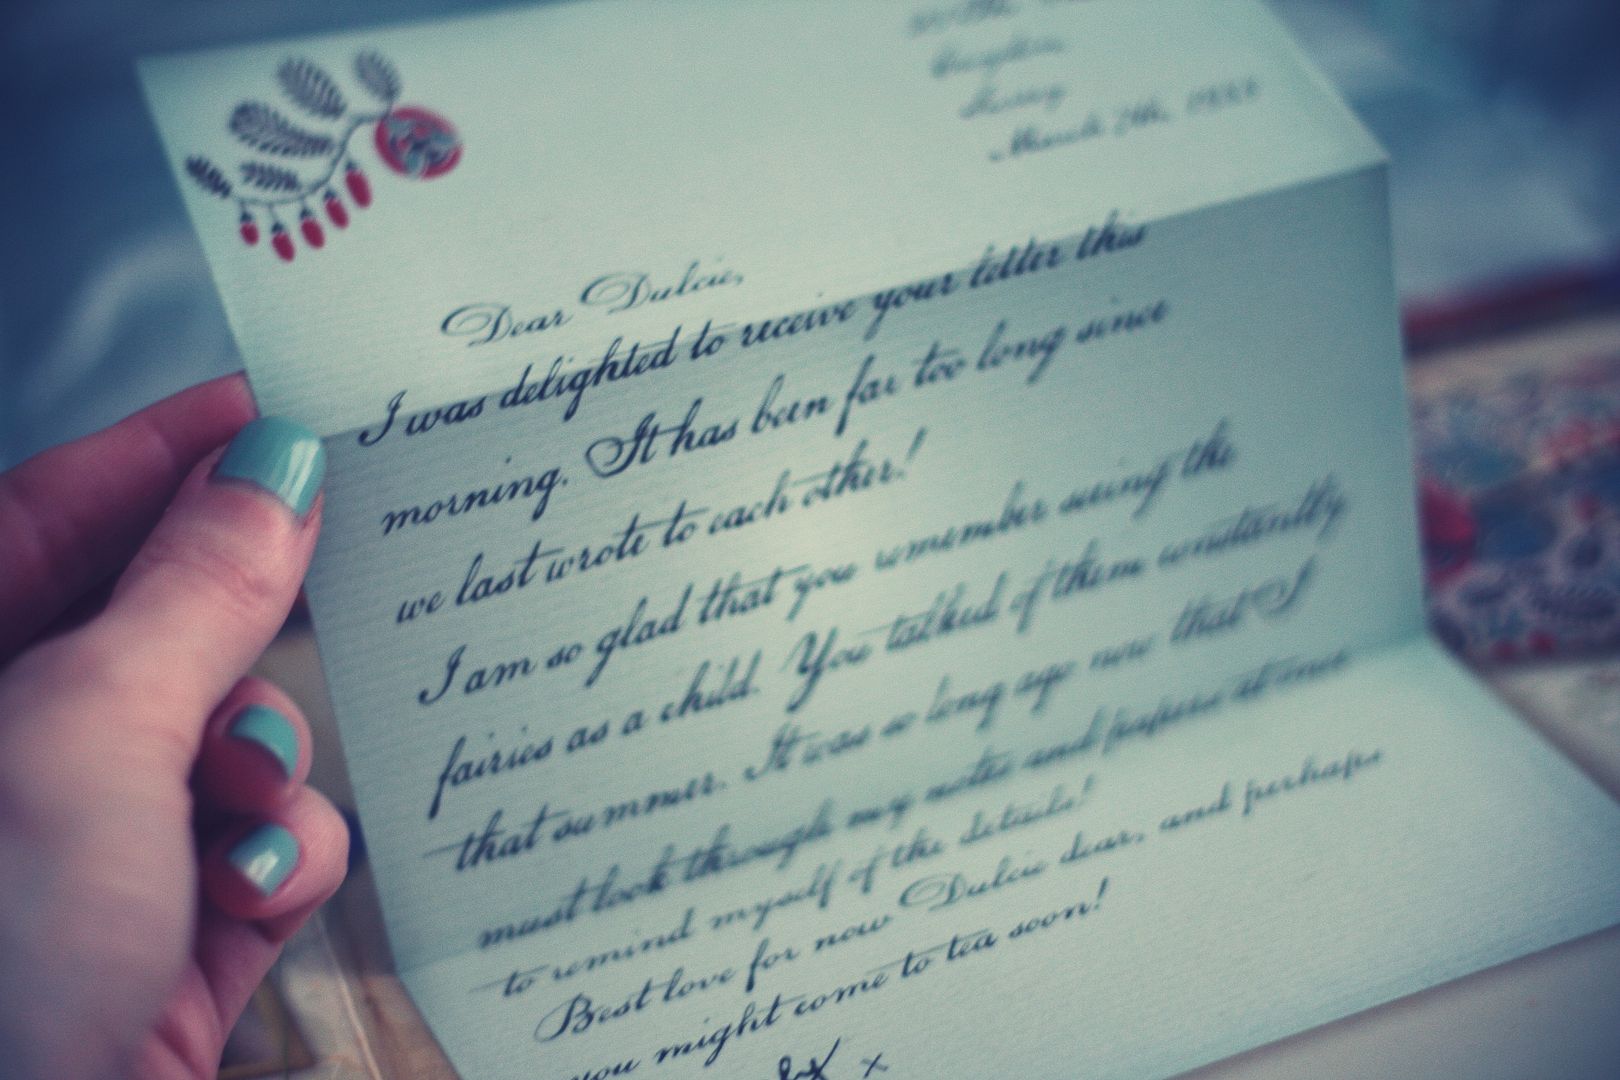 Surrey
March 7th, 1933
Dear Dulcie,
I was delighted to receive your letter this
morning. It has been far too long since
we last wrote to each other!
I am so glad that you remember seeing the
fairies as a child. You talked of them constantly
that summer. It was so long ago now that I
must look through my notes and papers at once
to remind myself of the details!
Best love for now Dulcie dear, and perhaps
you might come to tea soon!
x